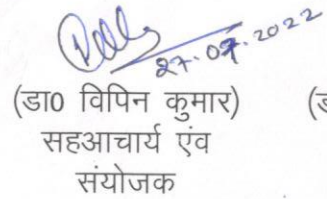 27.07.2022
(डा0 विपिन कुमार) (ड
सहआचार्य एंव
संयोजक